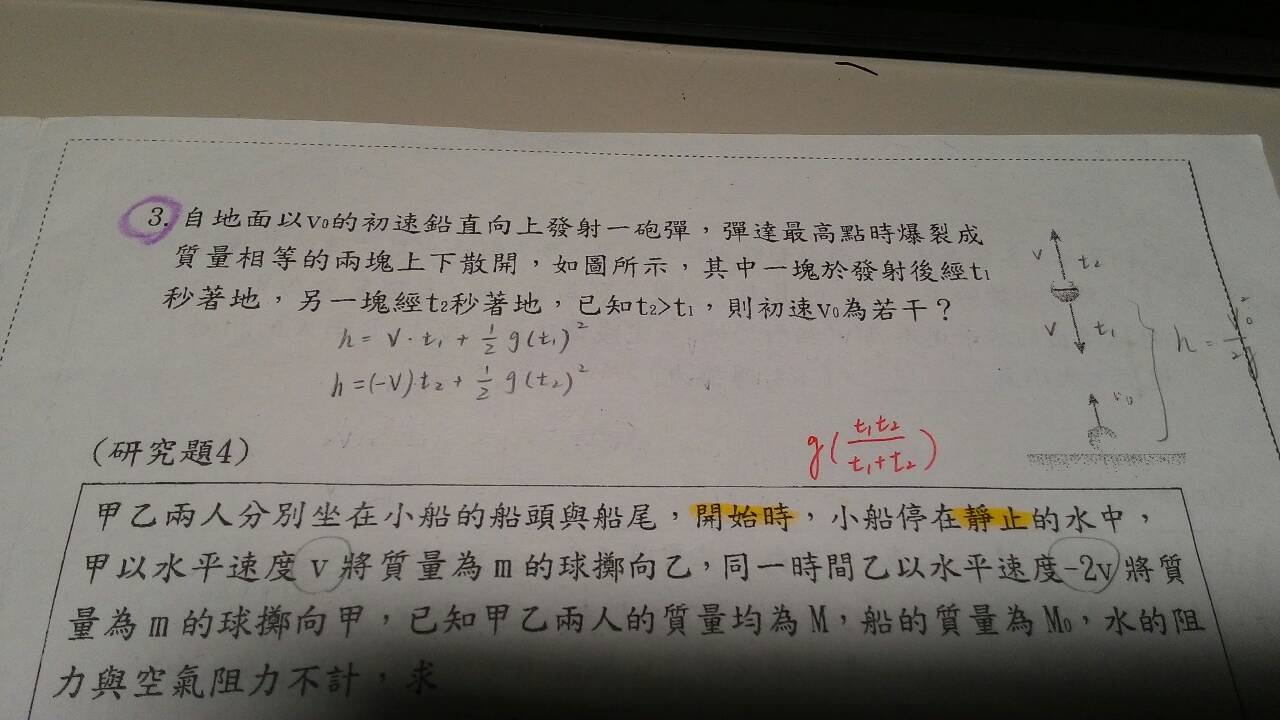 3. 自地面以v₀的初速鉛直向上發射一砲彈，彈達最高點時爆裂成
質量相等的兩塊上下散開，如圖所示，其中一塊於發射後經t₁
秒著地，另一塊經t₂秒著地，已知t₂>t₁，則初速v₀為若干？
h = V · t₁ + 1/2 g(t₁)²
h = (-V)·t₂ + 1/2 g(t₂)²
g( t₁t₂ / t₁+t₂ )
V t₂
V t₁
v₀
h = V₀² / 2g
(研究題4)
甲乙兩人分別坐在小船的船頭與船尾，開始時，小船停在靜止的水中，
甲以水平速度 v 將質量為 m 的球擲向乙，同一時間乙以水平速度-2v 將質
量為 m 的球擲向甲，已知甲乙兩人的質量均為 M，船的質量為 M₀，水的阻
力與空氣阻力不計，求